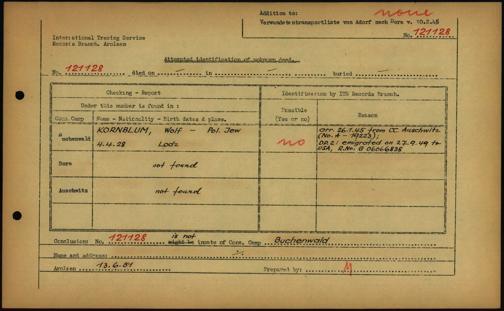 Addition to: none
Verwundetentransportliste von Adorf nach Dora v. 10.2.45
No. 121128
International Tracing Service
Records Branch. Arolsen
Attempted identification of unknown dead.
No. 121128 died on — in — buried —
Checking - Report
Identification by ITS Records Branch.
Under this number is found in :
Possible
(Yes or no)
Reason
Conc. Camp
Name - Nationality - Birth dates & place.
Buchenwald
KORNBLUM, Wolf - Pol. Jew
4.4.28 Lodz
no
arr. 26.1.45 from CC Auschwitz
(No. A - 19223);
DP 2: emigrated on 27.9.49 to
USA, R.No. B 06066838
Dora
not found
Auschwitz
not found
Conclusions: No. 121128 is not might be inmate of Conc. Camp Buchenwald
Name and address:
Arolsen 13.6.51
Prepared by: